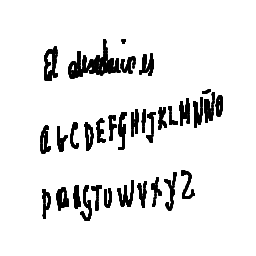 El abecedario es
A b C D E F G H I J K L M N Ñ O
P Q R S T U W V X Y Z